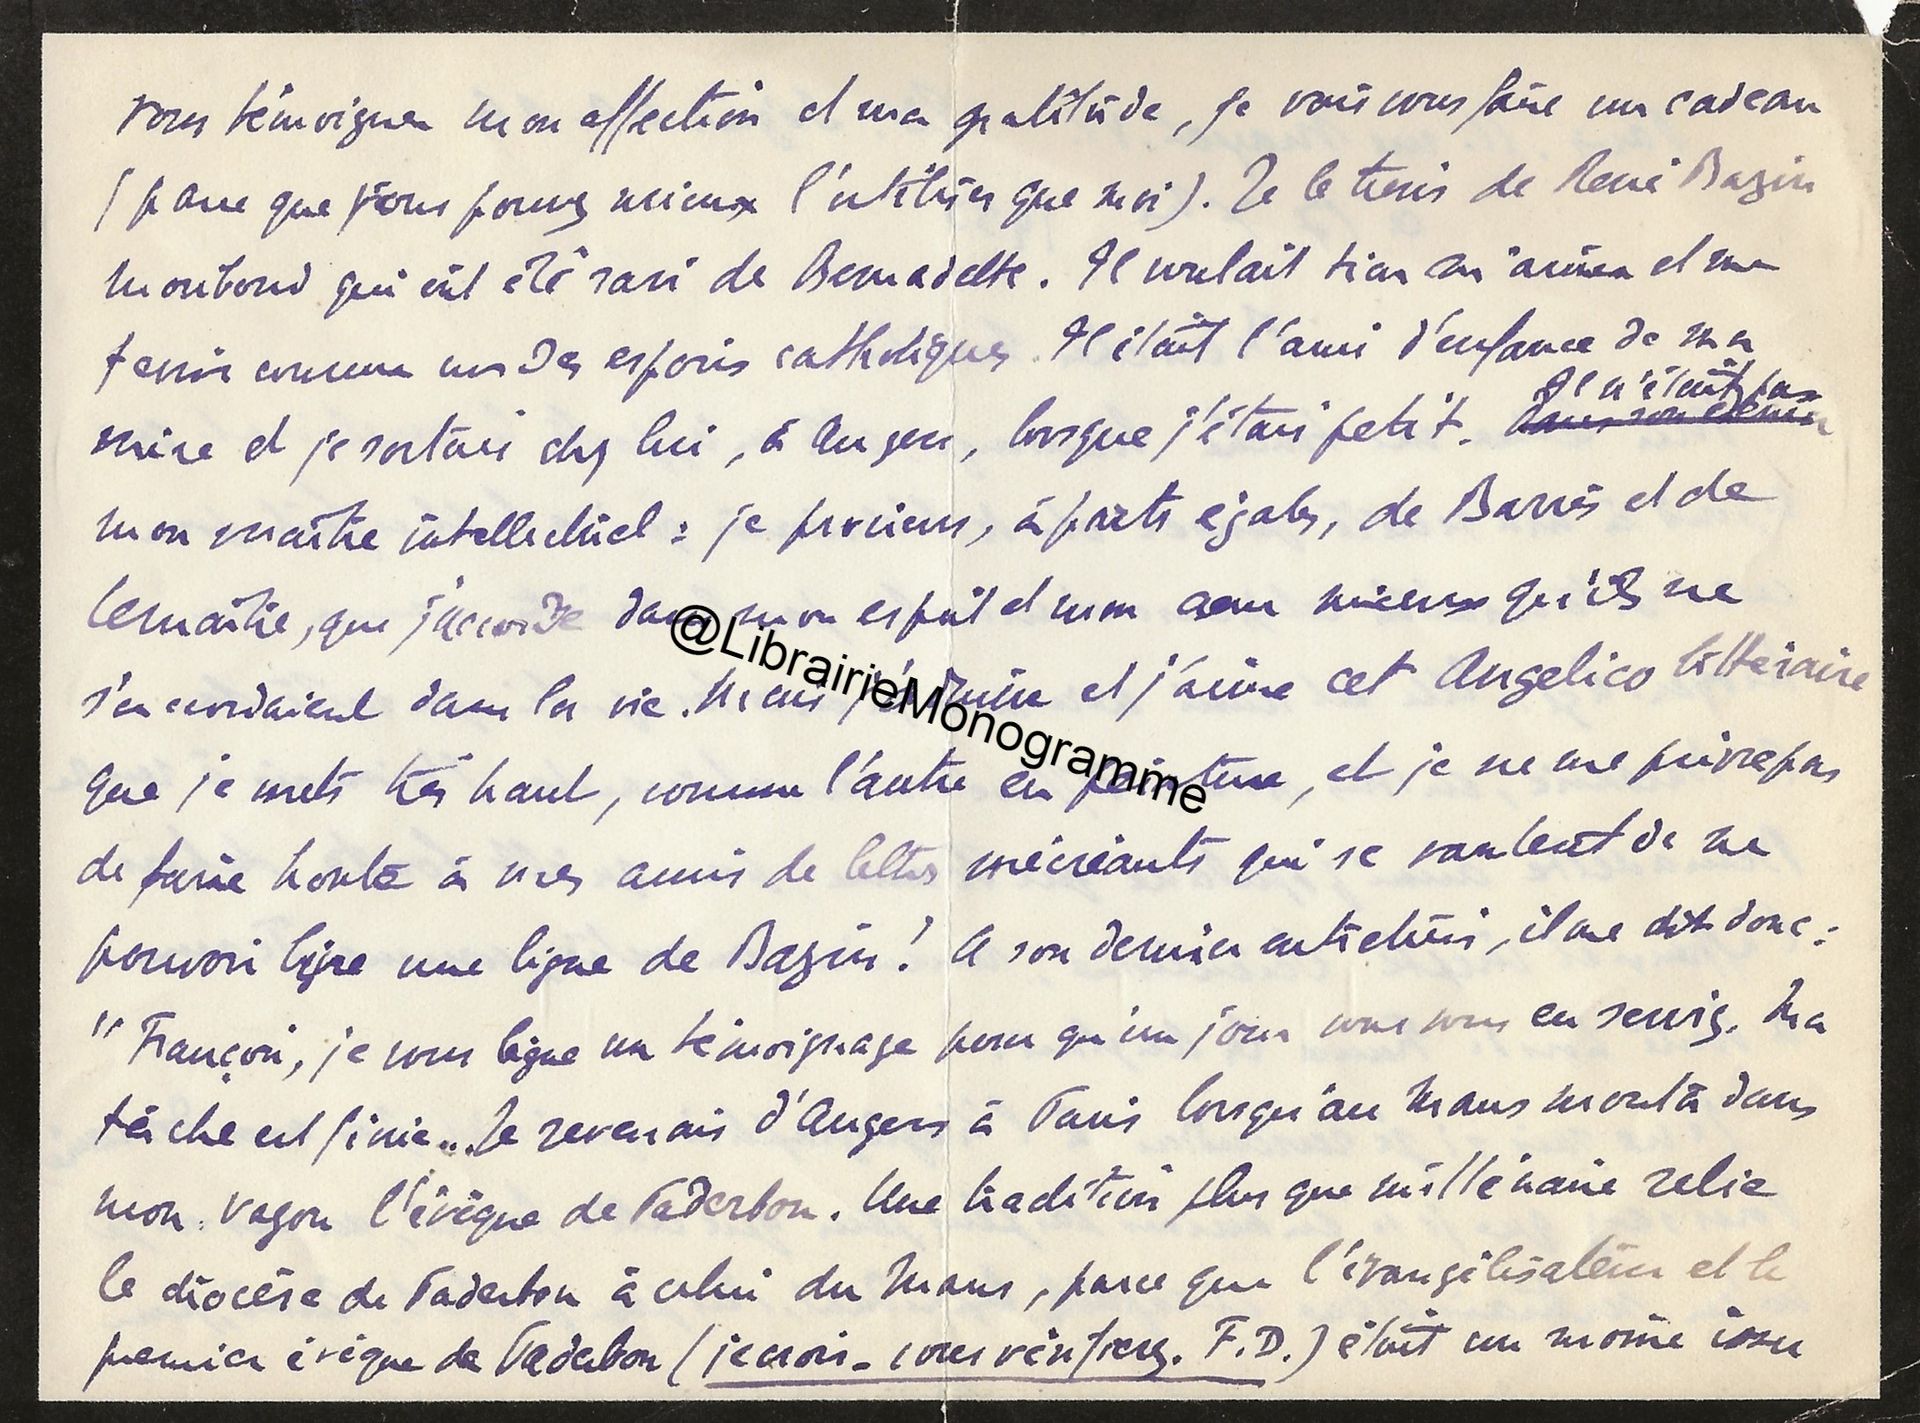 vous témoigner mon affection et ma gratitude, je vais vous faire un cadeau
(parce que vous pouvez mieux l'utiliser que moi). Je le tiens de René Bazin
moribond qui eût été ravi de Bernadette. Il voulait bien m'aimer et me
tenir comme un des espoirs catholiques. Il était l'ami d'enfance de ma
mère et je sortais chez lui, à Angers, lorsque j'étais petit. Il n'était pas
mon maître intellectuel : je proviens, à parts égales, de Barrès et de
Lemaître, que j'accorde dans mon esprit et mon cœur mieux qu'ils ne
s'accordaient dans la vie. Mais j'admire et j'aime cet Angelico littéraire
@LibrairieMonogramme
que je mets très haut, comme l'autre en peinture, et je ne me prive pas
de faire honte à mes amis de lettres mécréants qui se vantent de ne
pouvoir lire une ligne de Bazin ! A son dernier entretien, il me dit donc :
"François, je vous lègue un témoignage pour qu'un jour vous vous en serviez. Ma
tâche est finie... Je revenais d'Angers à Paris lorsqu'au Mans monta dans
mon wagon l'évêque de Paderborn. Une tradition plus que millénaire relie
le diocèse de Paderborn à celui du Mans, parce que l'évangélisateur et le
premier évêque de Paderborn (je crois - vous vérifierez. F.D.) était un moine issu